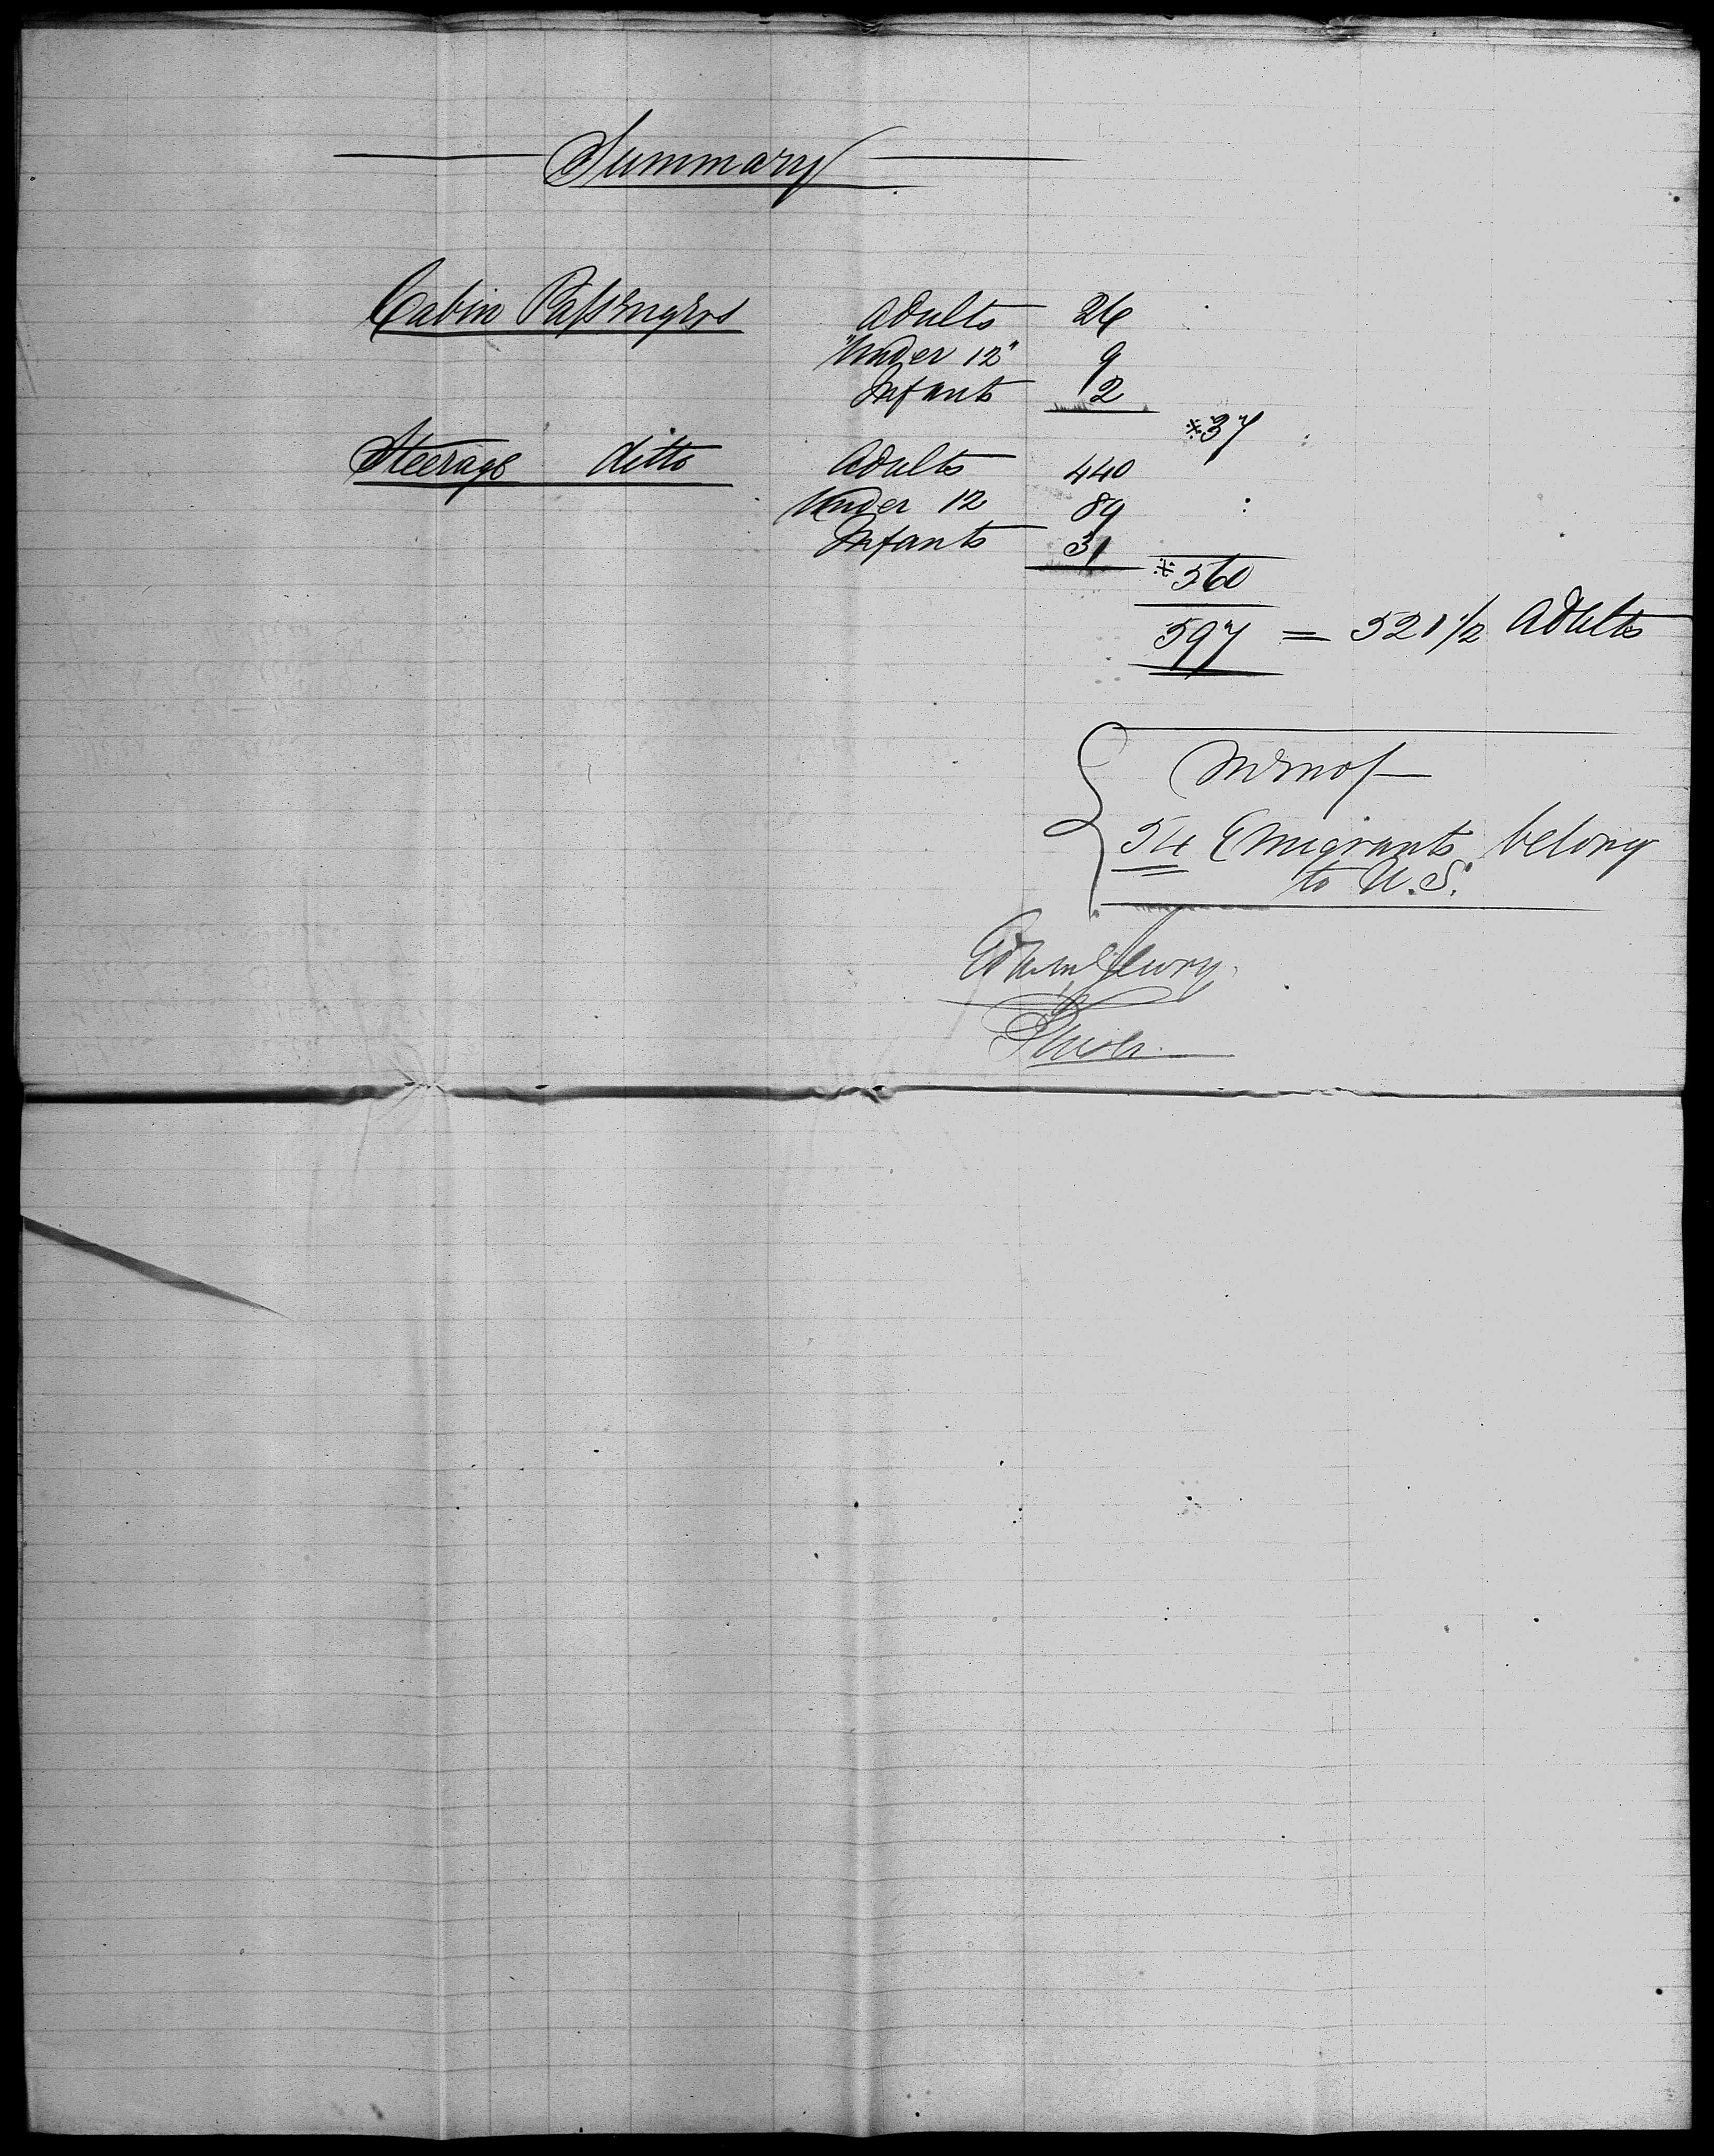 Summary
Cabin Passengers Adults 26
"Under 12" 9
Infants 2
*37
Steerage ditto Adults 440
Under 12 89
Infants 31
*560
597 = 521 1/2 Adults
Memo/
54 Emigrants belong
to U.S.
Purser